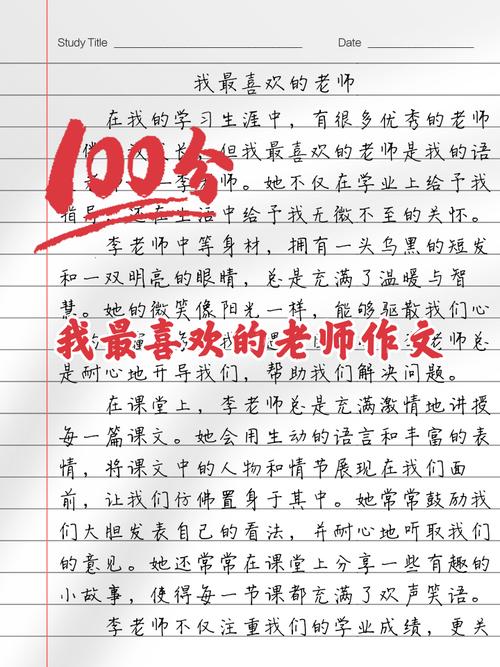 Study Title
Date
我最喜欢的老师
在我的学习生涯中，有很多优秀的老师
但我最喜欢的老师是我的语
100分
师。她不仅在学业上给予我
指导，还在生活中给予我无微不至的关怀。
李老师中等身材，拥有一头乌黑的短发
和一双明亮的眼睛，总是充满了温暖与智
慧。她的微笑像阳光一样，能够驱散我们心
我最喜欢的老师作文
是耐心地开导我们，帮助我们解决问题。
在课堂上，李老师总是充满激情地讲授
每一篇课文。她会用生动的语言和丰富的表
情，将课文中的人物和情节展现在我们面
前，让我们仿佛置身于其中。她常常鼓励我
们大胆发表自己的看法，并耐心地听取我们
的意见。她还常常在课堂上分享一些有趣的
小故事，使得每一节课都充满了欢声笑语。
李老师不仅注重我们的学业成绩，更关